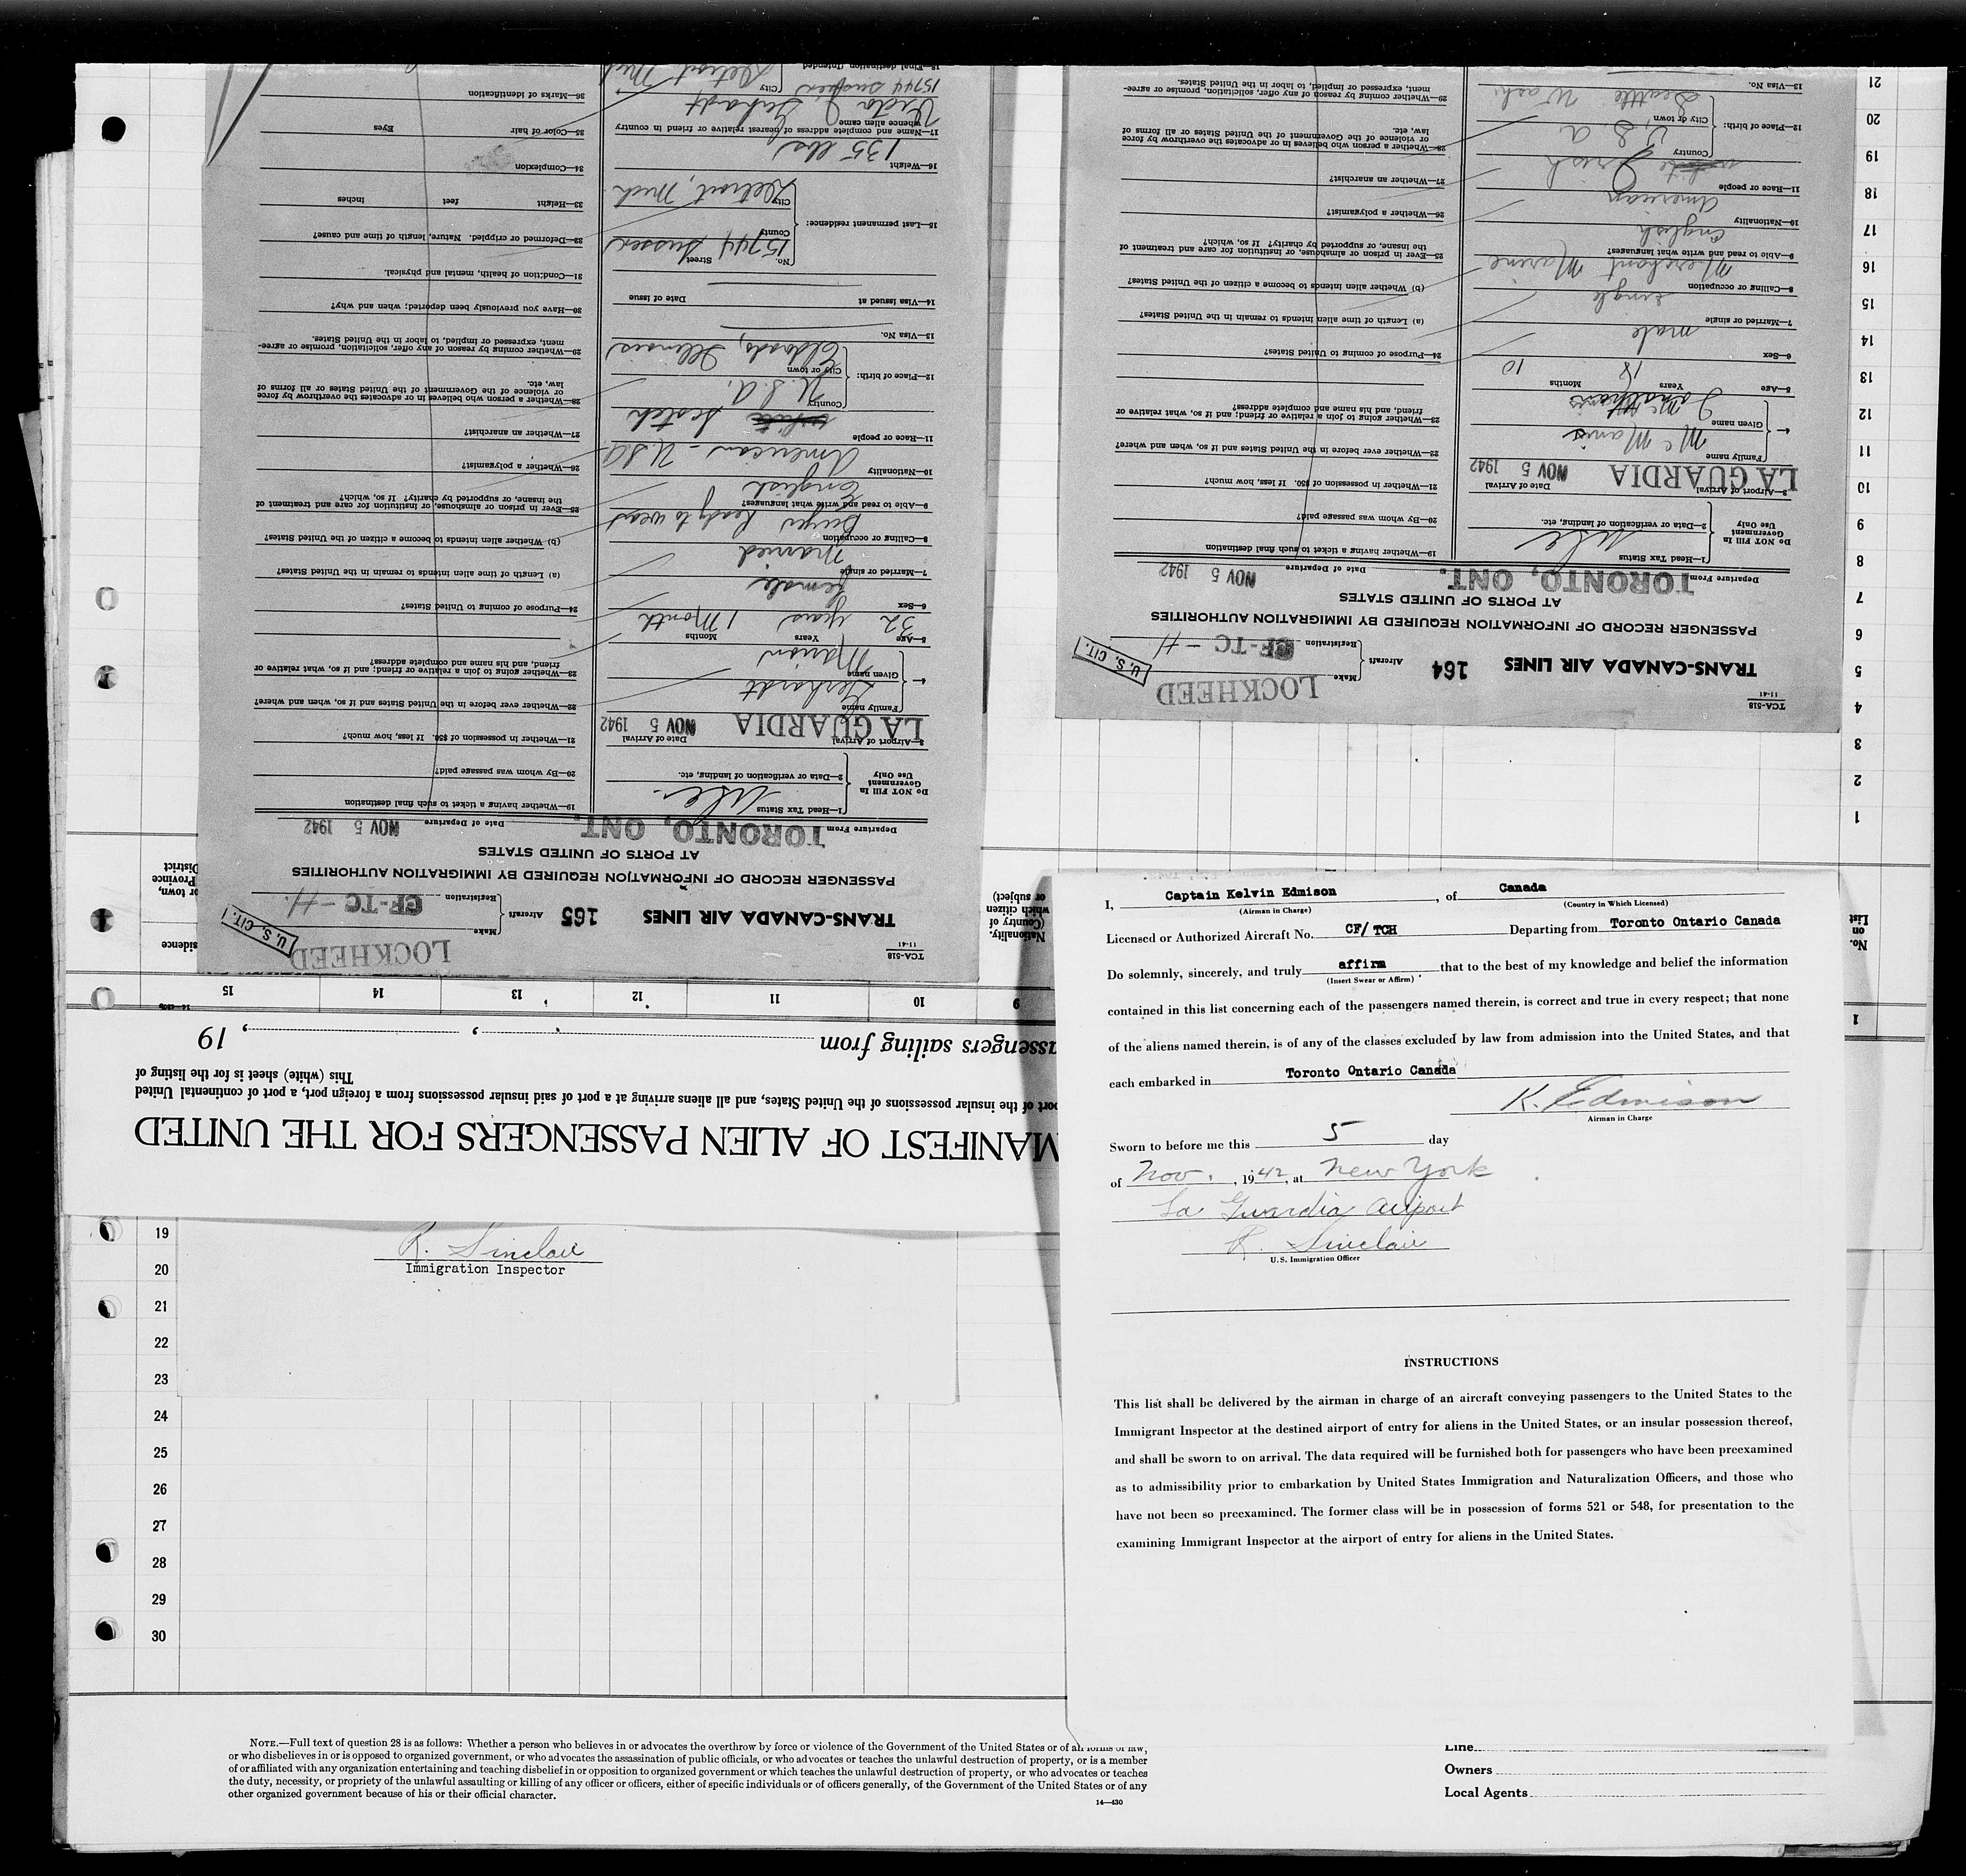 TCA-518
11-41
LOCKHEED
TRANS-CANADA AIR LINES 165 Aircraft
Make
Registration CF-TC-H.
U. S. CIT.
PASSENGER RECORD OF INFORMATION REQUIRED BY IMMIGRATION AUTHORITIES
AT PORTS OF UNITED STATES
Departure From TORONTO, ONT. Date of Departure NOV 5 1942
Do NOT Fill In
Government
Use Only
1—Head Tax Status
2—Data or verification of landing, etc.
3—Airport of Arrival LA GUARDIA Date of Arrival NOV 5 1942
4—
Family name Gerhardt
Given name Marion
5—Age 32 Years years Months 1 Month
6—Sex female
7—Married or single Married
8—Calling or occupation Buyer Ready to wear
9—Able to read and write what languages? English
10—Nationality American - U.S.A.
11—Race or people Scotch
12—Place of birth:
Country U.S.A.
City or town Eldorado, Illinois
13—Visa No.
14—Visa issued at Date of issue
15—Last permanent residence:
No. Street 15744 Sussex
County
City Detroit, Mich
16—Weight 135 lbs
17—Name and complete address of nearest relative or friend in country
whence alien came
15744 Sussex City Detroit Mich
18—Final destination (Intended
19—Whether having a ticket to such final destination
20—By whom was passage paid?
21—Whether in possession of $50. If less, how much?
22—Whether ever before in the United States and if so, when and where?
23—Whether going to join a relative or friend; and if so, what relative or
friend, and his name and complete address?
24—Purpose of coming to United States?
(a) Length of time alien intends to remain in the United States?
(b) Whether alien intends to become a citizen of the United States?
25—Ever in prison or almshouse, or institution for care and treatment of
the insane, or supported by charity? If so, which?
26—Whether a polygamist?
27—Whether an anarchist?
28—Whether a person who believes in or advocates the overthrow by force
or violence of the Government of the United States or all forms of
law, etc.
29—Whether coming by reason of any offer, solicitation, promise or agree-
ment, expressed or implied, to labor in the United States.
30—Have you previously been deported; when and why?
31—Condition of health, mental and physical.
32—Deformed or crippled. Nature, length of time and cause?
33—Height feet inches
34—Complexion
35—Color of hair Eyes
36—Marks of identification
TCA-518
11-41
LOCKHEED
TRANS-CANADA AIR LINES 164 Aircraft
Make
Registration CF-TC-H
U. S. CIT.
PASSENGER RECORD OF INFORMATION REQUIRED BY IMMIGRATION AUTHORITIES
AT PORTS OF UNITED STATES
Departure From TORONTO, ONT. Date of Departure NOV 5 1942
Do NOT Fill In
Government
Use Only
1—Head Tax Status
2—Data or verification of landing, etc.
3—Airport of Arrival LA GUARDIA Date of Arrival NOV 5 1942
4—
Family name McManis
Given name
5—Age 18 Years 10 Months
6—Sex male
7—Married or single single
8—Calling or occupation Merchant Marine
9—Able to read and write what languages? English
10—Nationality American
11—Race or people Irish
12—Place of birth:
Country U.S.A
City or town Seattle Wash
13—Visa No.
19—Whether having a ticket to such final destination
20—By whom was passage paid?
21—Whether in possession of $50. If less, how much?
22—Whether ever before in the United States and if so, when and where?
23—Whether going to join a relative or friend; and if so, what relative or
friend, and his name and complete address?
24—Purpose of coming to United States?
(a) Length of time alien intends to remain in the United States?
(b) Whether alien intends to become a citizen of the United States?
25—Ever in prison or almshouse, or institution for care and treatment of
the insane, or supported by charity? If so, which?
26—Whether a polygamist?
27—Whether an anarchist?
28—Whether a person who believes in or advocates the overthrow by force
or violence of the Government of the United States or all forms of
law, etc.
29—Whether coming by reason of any offer, solicitation, promise or agree-
ment, expressed or implied, to labor in the United States.
1
2
3
4
5
6
7
8
9
10
11
12
13
14
15
16
17
18
19
20
21
No.
on
List
1
MANIFEST OF ALIEN PASSENGERS FOR THE UNITED
port of the insular possessions of the United States, and all aliens arriving at a port of said insular possessions from a foreign port, a port of continental United
This (white) sheet is for the listing of
assengers sailing from , , 19
9 10 11 12 13 14 15
Nationality.
(Country of
which citizen
or subject)
sidence
or town,
Province
District
I, Captain Kelvin Edmison, of Canada
(Airman in Charge) (Country in Which Licensed)
Licensed or Authorized Aircraft No. CF/ TCH Departing from Toronto Ontario Canada
Do solemnly, sincerely, and truly affirm that to the best of my knowledge and belief the information
(Insert Swear or Affirm)
contained in this list concerning each of the passengers named therein, is correct and true in every respect; that none
of the aliens named therein, is of any of the classes excluded by law from admission into the United States, and that
each embarked in Toronto Ontario Canada
K. Edmison
Airman in Charge
Sworn to before me this 5 day
of Nov., 1942, at New York
La Guardia Airport
R. Sinclair
U.S. Immigration Officer
INSTRUCTIONS
This list shall be delivered by the airman in charge of an aircraft conveying passengers to the United States to the
Immigrant Inspector at the destined airport of entry for aliens in the United States, or an insular possession thereof,
and shall be sworn to on arrival. The data required will be furnished both for passengers who have been preexamined
as to admissibility prior to embarkation by United States Immigration and Naturalization Officers, and those who
have not been so preexamined. The former class will be in possession of forms 521 or 548, for presentation to the
examining Immigrant Inspector at the airport of entry for aliens in the United States.
R. Sinclair
Immigration Inspector
19
20
21
22
23
24
25
26
27
28
29
30
NOTE.—Full text of question 28 is as follows: Whether a person who believes in or advocates the overthrow by force or violence of the Government of the United States or of all forms of law,
or who disbelieves in or is opposed to organized government, or who advocates the assassination of public officials, or who advocates or teaches the unlawful destruction of property, or is a member
of or affiliated with any organization entertaining and teaching disbelief in or opposition to organized government or which teaches the unlawful destruction of property, or who advocates or teaches
the duty, necessity, or propriety of the unlawful assaulting or killing of any officer or officers, either of specific individuals or of officers generally, of the Government of the United States or of any
other organized government because of his or their official character.
14—430
Line
Owners
Local Agents